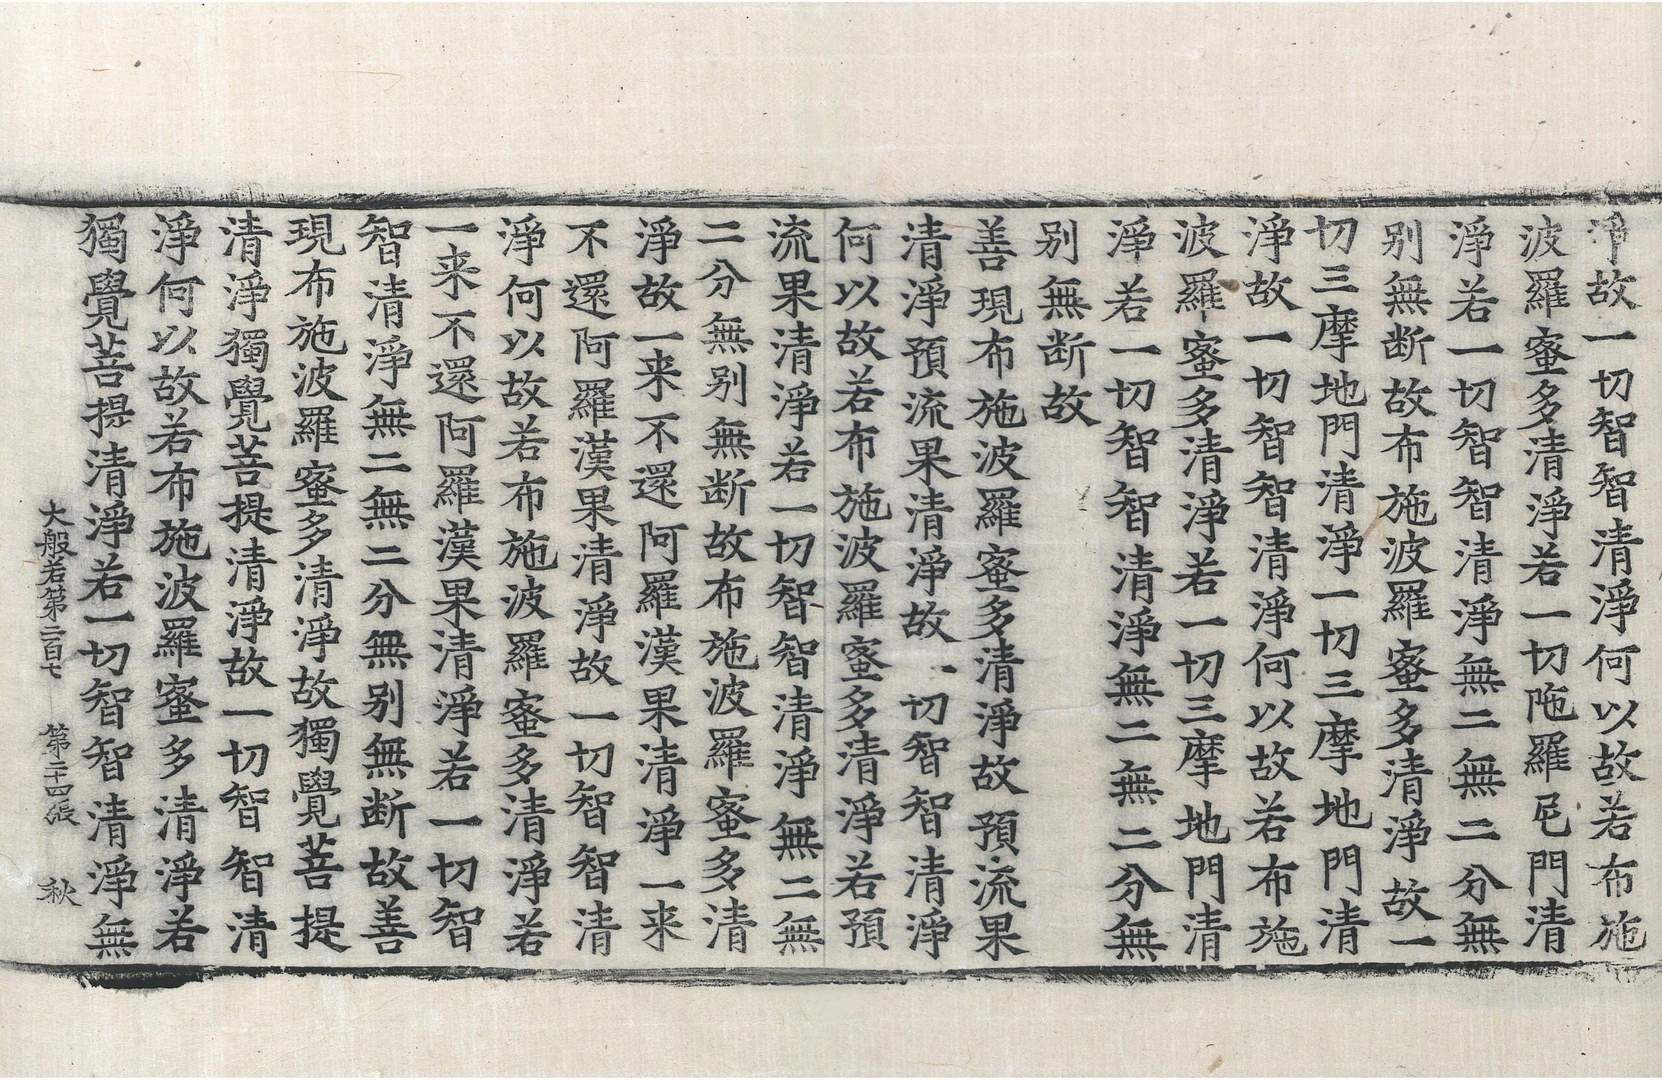 淨故一切智智清淨何以故若布施
波羅蜜多清淨若一切陁羅尼門清
淨若一切智智清淨無二無二分無
别無断故布施波羅蜜多清淨故一
切三摩地門清淨一切三摩地門清
淨故一切智智清淨何以故若布施
波羅蜜多清淨若一切三摩地門清
淨若一切智智清淨無二無二分無
别無断故
善現布施波羅蜜多清淨故預流果
清淨預流果清淨故一切智智清淨
何以故若布施波羅蜜多清淨若預
流果清淨若一切智智清淨無二無
二分無别無断故布施波羅蜜多清
淨故一来不還阿羅漢果清淨一来
不還阿羅漢果清淨故一切智智清
淨何以故若布施波羅蜜多清淨若
一来不還阿羅漢果清淨若一切智
智清淨無二無二分無别無断故善
現布施波羅蜜多清淨故獨覺菩提
清淨獨覺菩提清淨故一切智智清
淨何以故若布施波羅蜜多清淨若
獨覺菩提清淨若一切智智清淨無
大般若第二百七 第二十四張 秋